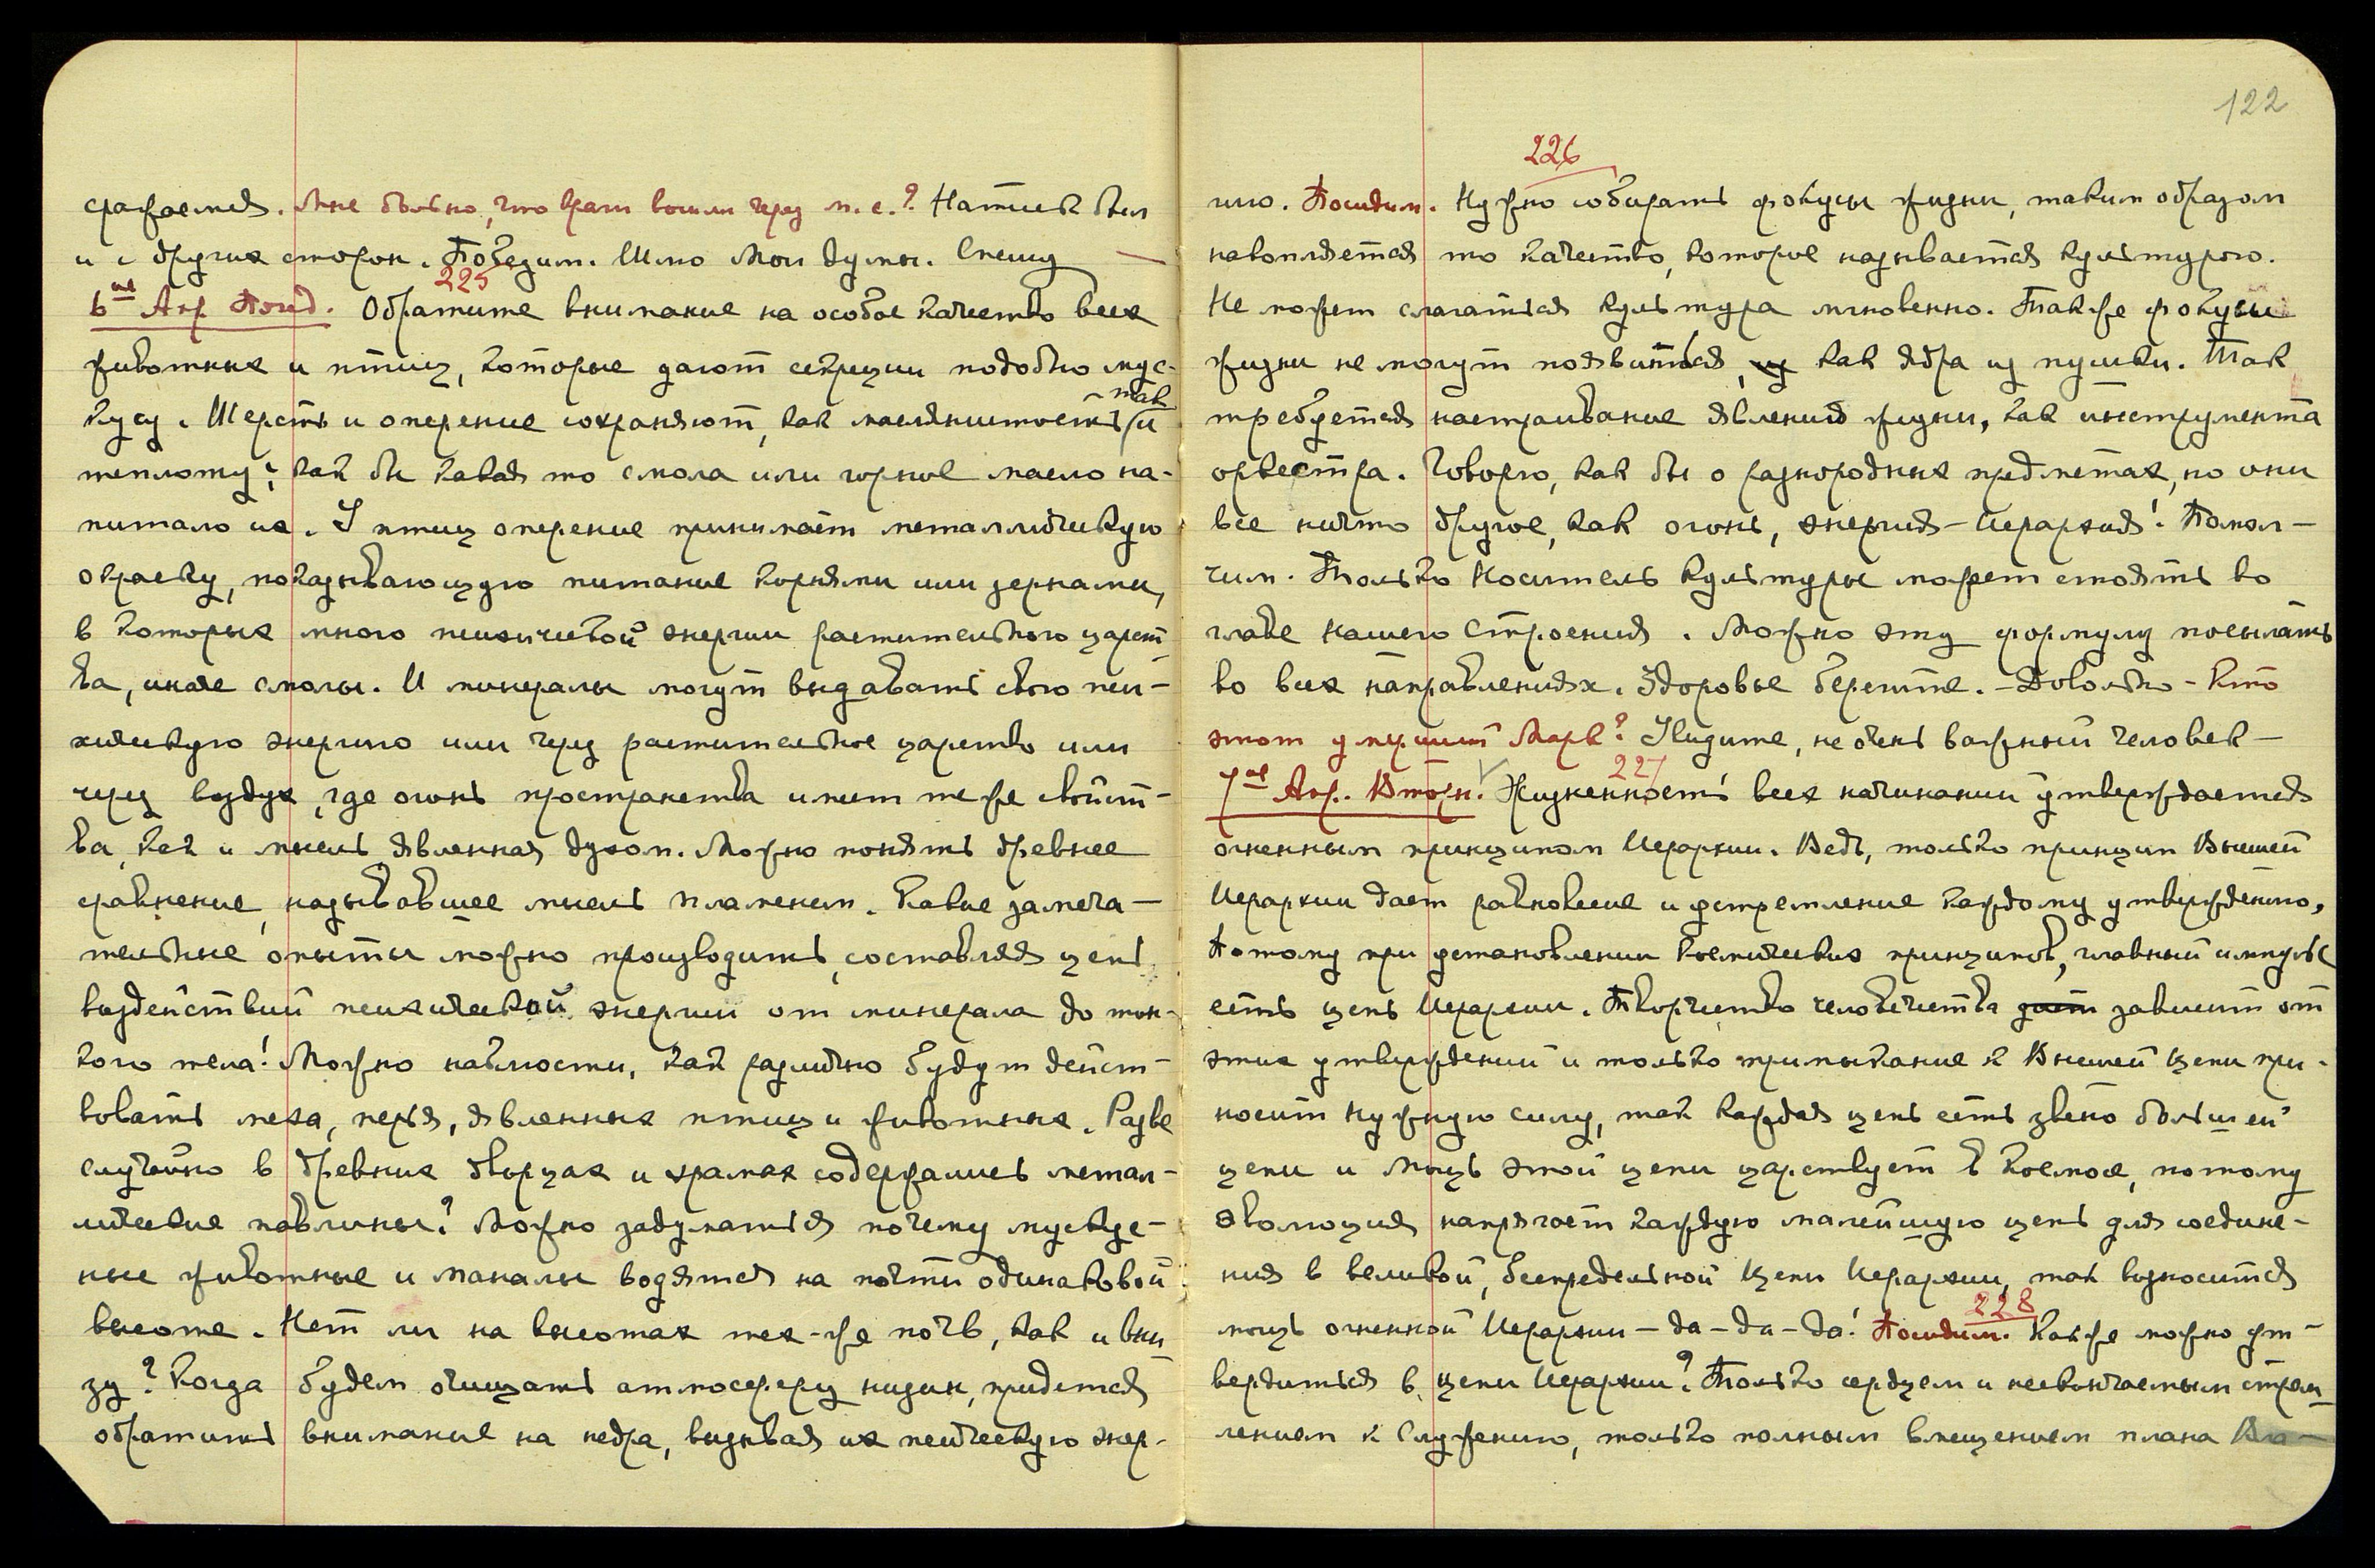 сражаемся. Мне больно, что враги вошли через м. с.? Натиск был
и с других сторон. Победим. Шлю Мои думы. Спешу —
225
6ое Апр. Понед. Обратите внимание на особое качество всех
животных и птиц, которые дают секреции подобно мус-
кусу. Шерсть и оперение сохраняют, как маслянистость, так и
теплоту; как бы какая то смола или горное масло на-
питало их. У птиц оперение принимает металлическую
окраску, показывающую питание корнями или зернами,
в которых много психической энергии растительного царст-
ва, иначе смолы. И минералы могут выдавать свою пси-
хическую энергию или через растительное царство или
через воздух, где огонь пространства имеет те же свойст-
ва, как и мысль, явленная духом. Можно понять древнее
сравнение, называвшее мысль пламенем. Какие замеча-
тельные опыты можно производить, составляя цепь
воздействий психической энергии от минерала до тон-
кого тела! Можно наблюсти, как различно будут дейст-
вовать меха, перья, явленных птиц и животных. Разве
случайно в древних дворцах и храмах содержались метал-
лические павлины? Можно задуматься почему мускус-
ные животные и маналы водятся на почти одинаковой
высоте. Нет ли на высотах тех-же почв, как и вни-
зу? Когда будем очищать атмосферу низин, придется
обратить внимание на недра, вызывая их психическую энер-
122
226
гию. Посидим. Нужно собирать фокусы жизни, таким образом
накопляется то качество, которое называется культурою.
Не может слагаться культура мгновенно. Также фокусы
жизни не могут появиться, из как ядра из пушки. Так
требуется настраивание явлений жизни, как инструмента
оркестра. Говорю, как бы о разнородных предметах, но они
все ничто другое, как огонь, энергия – Иерархия! Помол-
чим. Только Носитель Культуры может стоять во
главе нашего Строения. Можно эту формулу посылать
во всех направлениях. Здоровье берегите. – Довольно – Кто
этот умерший Марк? Увидите, не очень важный человек —
227
7ое Апр. Вторн. Жизненность всех начинаний утверждается
огненным принципом Иерархии. Ведь, только принцип Высшей
Иерархии дает равновесие и устремление каждому утверждению,
Потому при установлении Космических принципов, главный импульс
есть цепь Иерархии. Творчество человечества дает зависит от
этих утверждений и только примыкание к Высшей Цепи при-
носит нужную силу, так каждая цепь есть звено большей
цепи и Мощь этой цепи царствует в Космосе, потому
эволюция напрягает каждую малейшую цепь для соедине-
ния в великой, беспредельной Цепи Иерархии, так возносится
228
мощь огненной Иерархии – да – да – да! Посидим. Как же можно ут-
вердиться в цепи Иерархии? Только сердцем и нескончаемым стрем-
лением к Служению, только полным вмещением плана Вла-